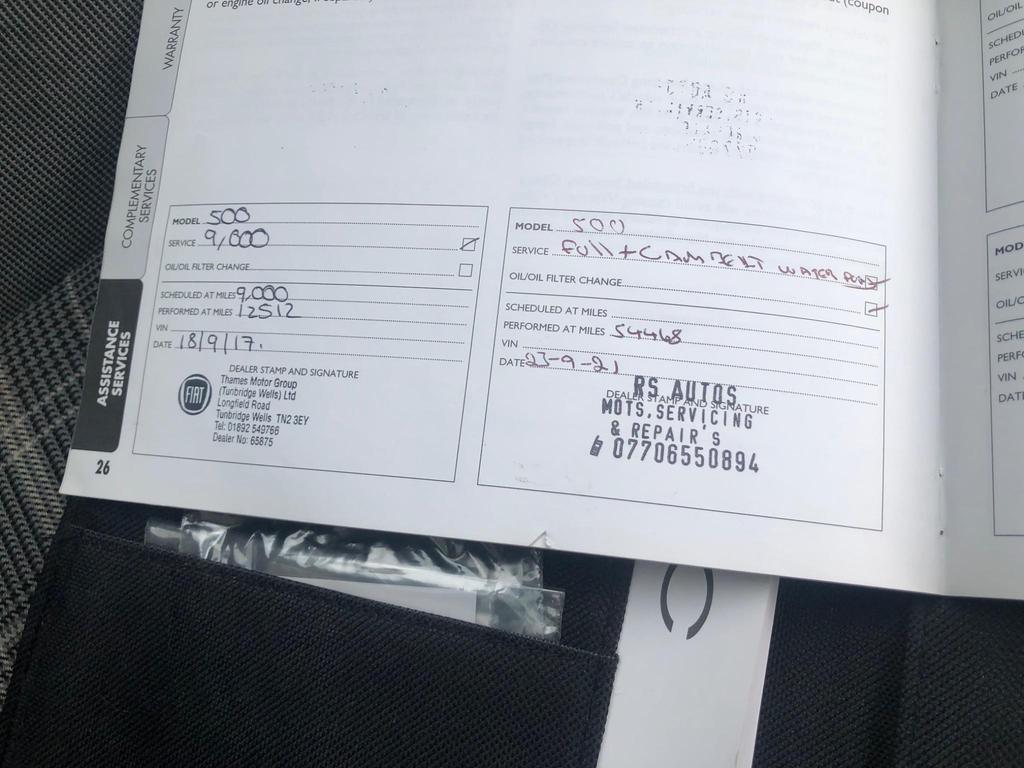 or engine oil change,
(coupon
WARRANTY
COMPLEMENTARY
SERVICES
ASSISTANCE
SERVICES
MODEL 500
SERVICE 9,000
OIL/OIL FILTER CHANGE
SCHEDULED AT MILES 9,000
PERFORMED AT MILES 12512
VIN
DATE 18/9/17.
DEALER STAMP AND SIGNATURE
FIAT
Thames Motor Group
(Tunbridge Wells) Ltd
Longfield Road
Tunbridge Wells TN2 3EY
Tel: 01892 549766
Dealer No: 65875
26
MODEL 500
SERVICE FULL + CAMBELT WATER PUMP
OIL/OIL FILTER CHANGE
SCHEDULED AT MILES
PERFORMED AT MILES 54468
VIN
DATE 23-9-21
RS AUTOS
DEALER STAMP AND SIGNATURE
MOTS, SERVICING
& REPAIR'S
07706550894
OIL/OIL
SCHEDU
PERFOR
VIN
DATE
MOD
SERVIC
OIL/O
SCHE
PERF
VIN
DAT